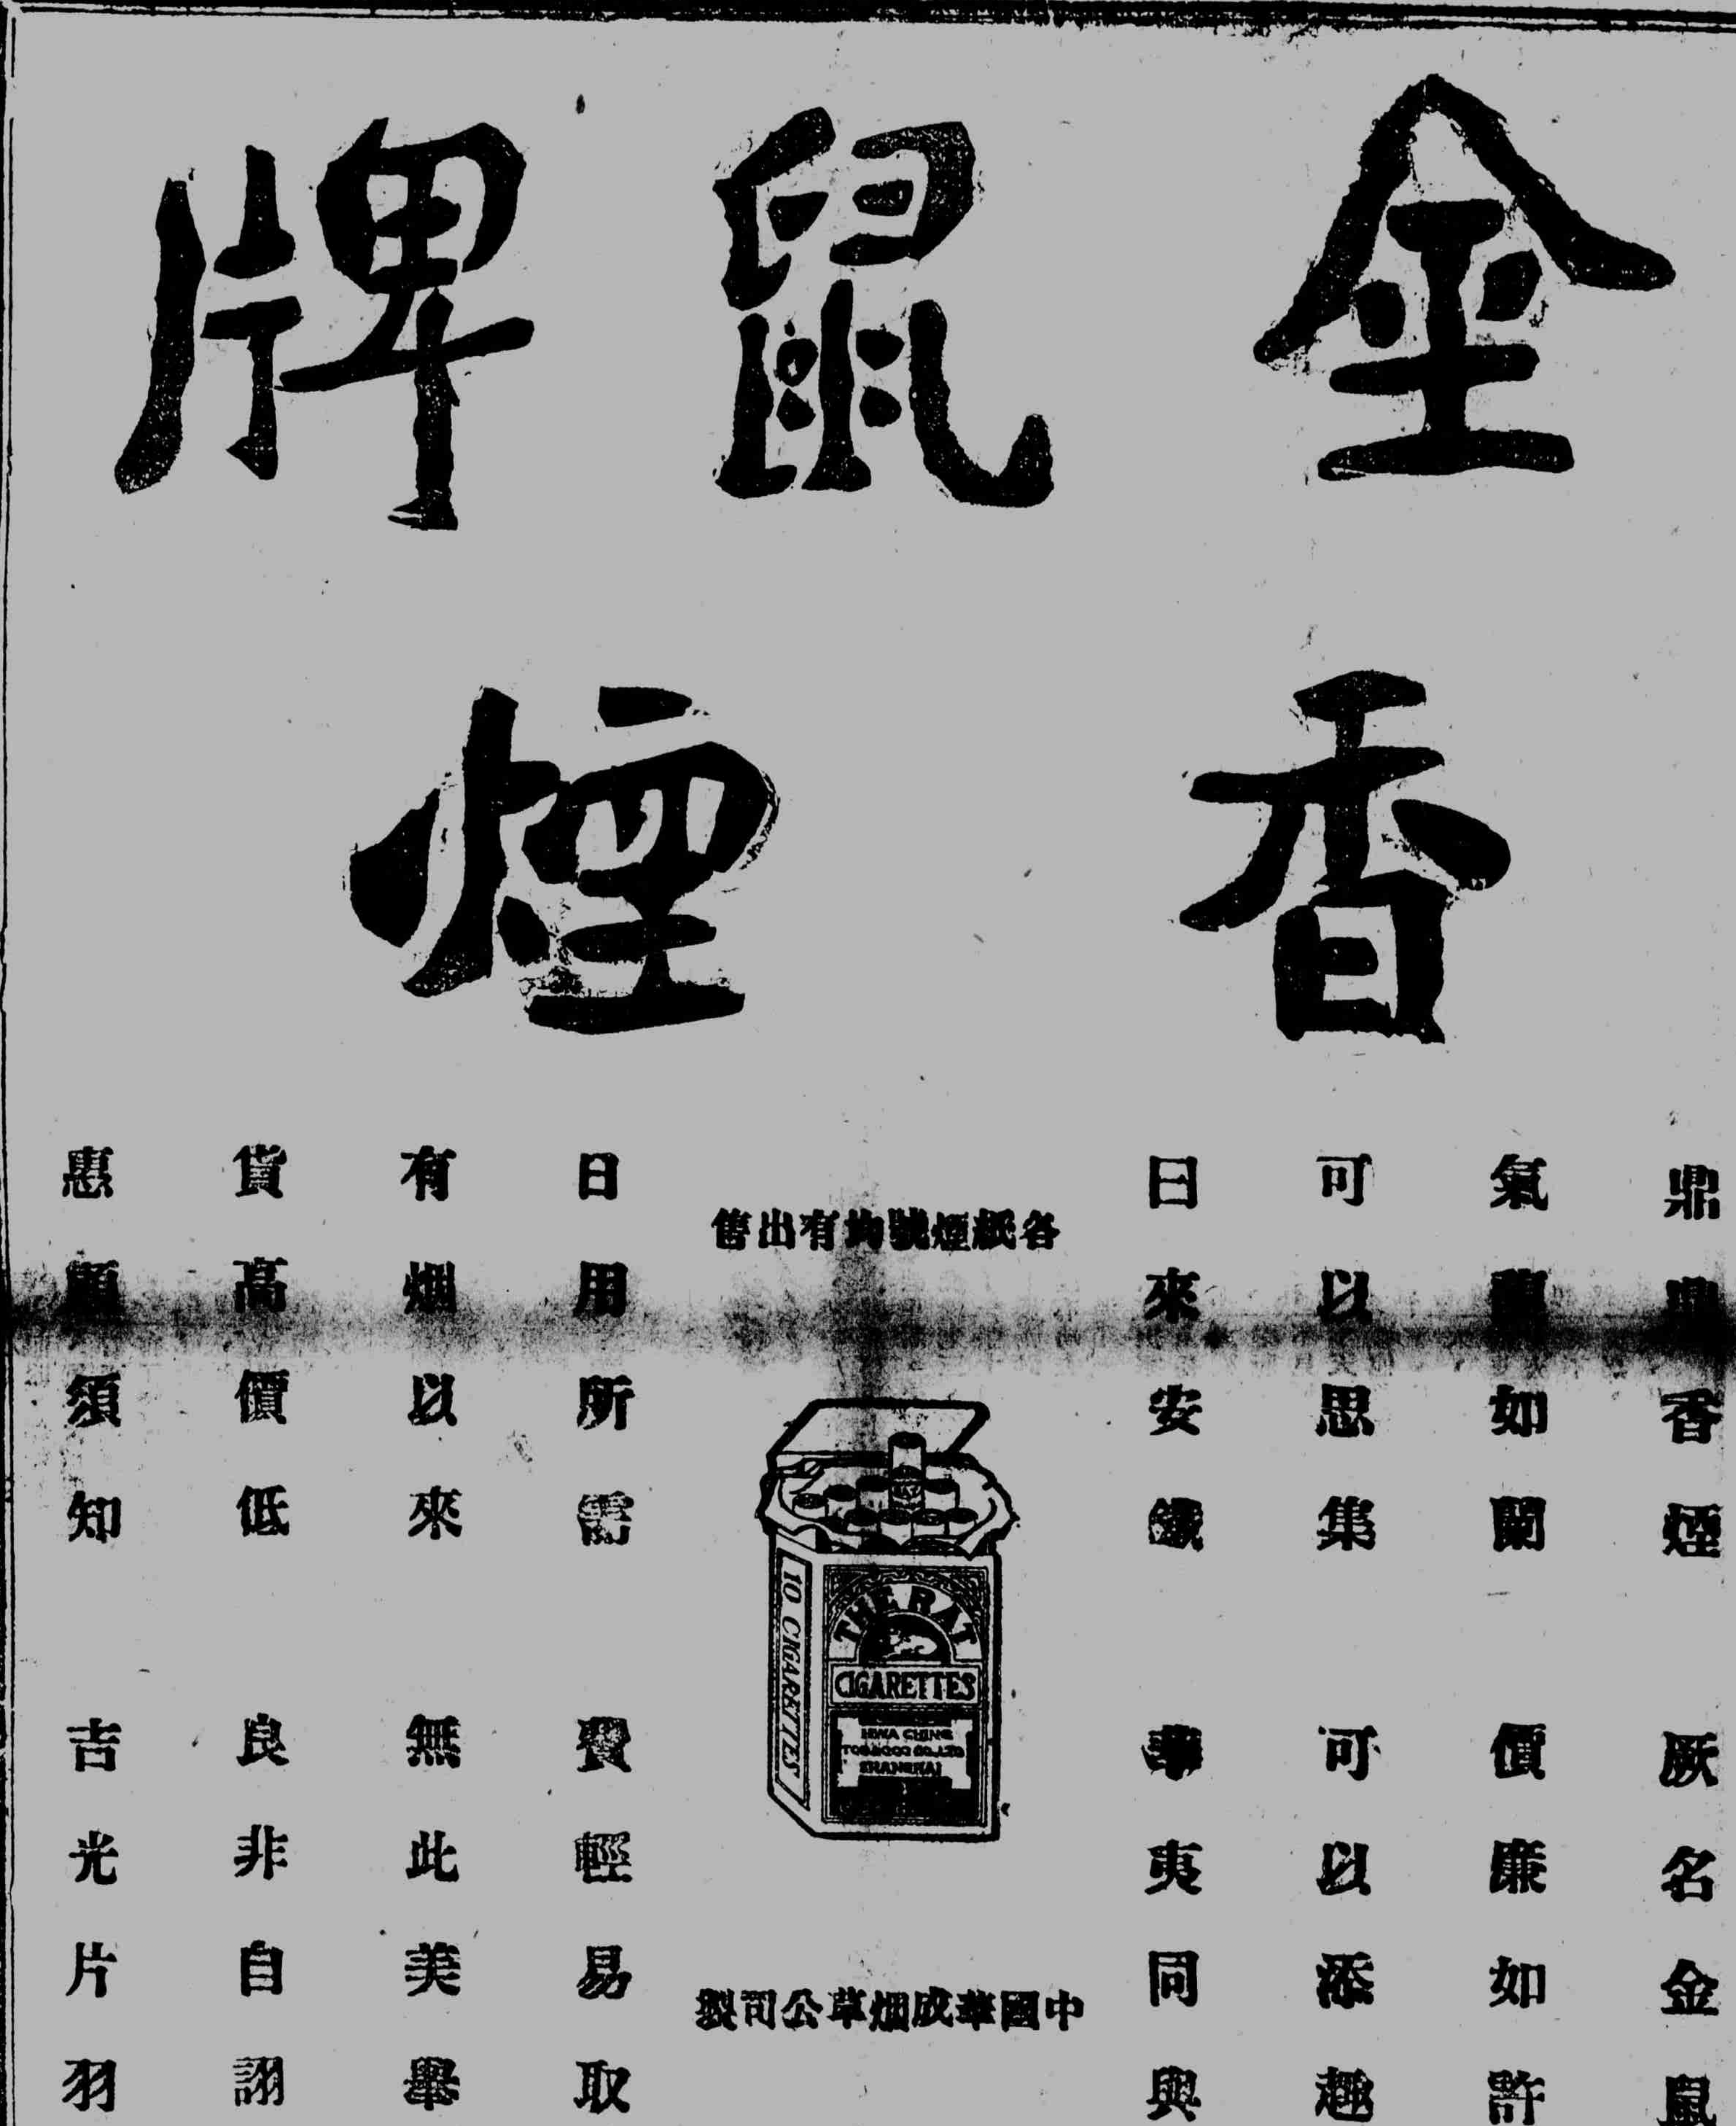 金鼠牌
香煙
鼎鼎香煙 厥名金鼠
氣馥如蘭 價廉如許
可以思集 可以添趣
日來安 華夷同興
各紙煙號均有出售
THE RAT
CIGARETTES
HWA CHING
TOBACCO CO., LTD
SHANGHAI
10 CIGARETTES
中國華成烟草公司製
日用所需 費輕易取
有烟以來 無此美舉
貨高價低 良非自詡
惠顧須知 吉光片羽